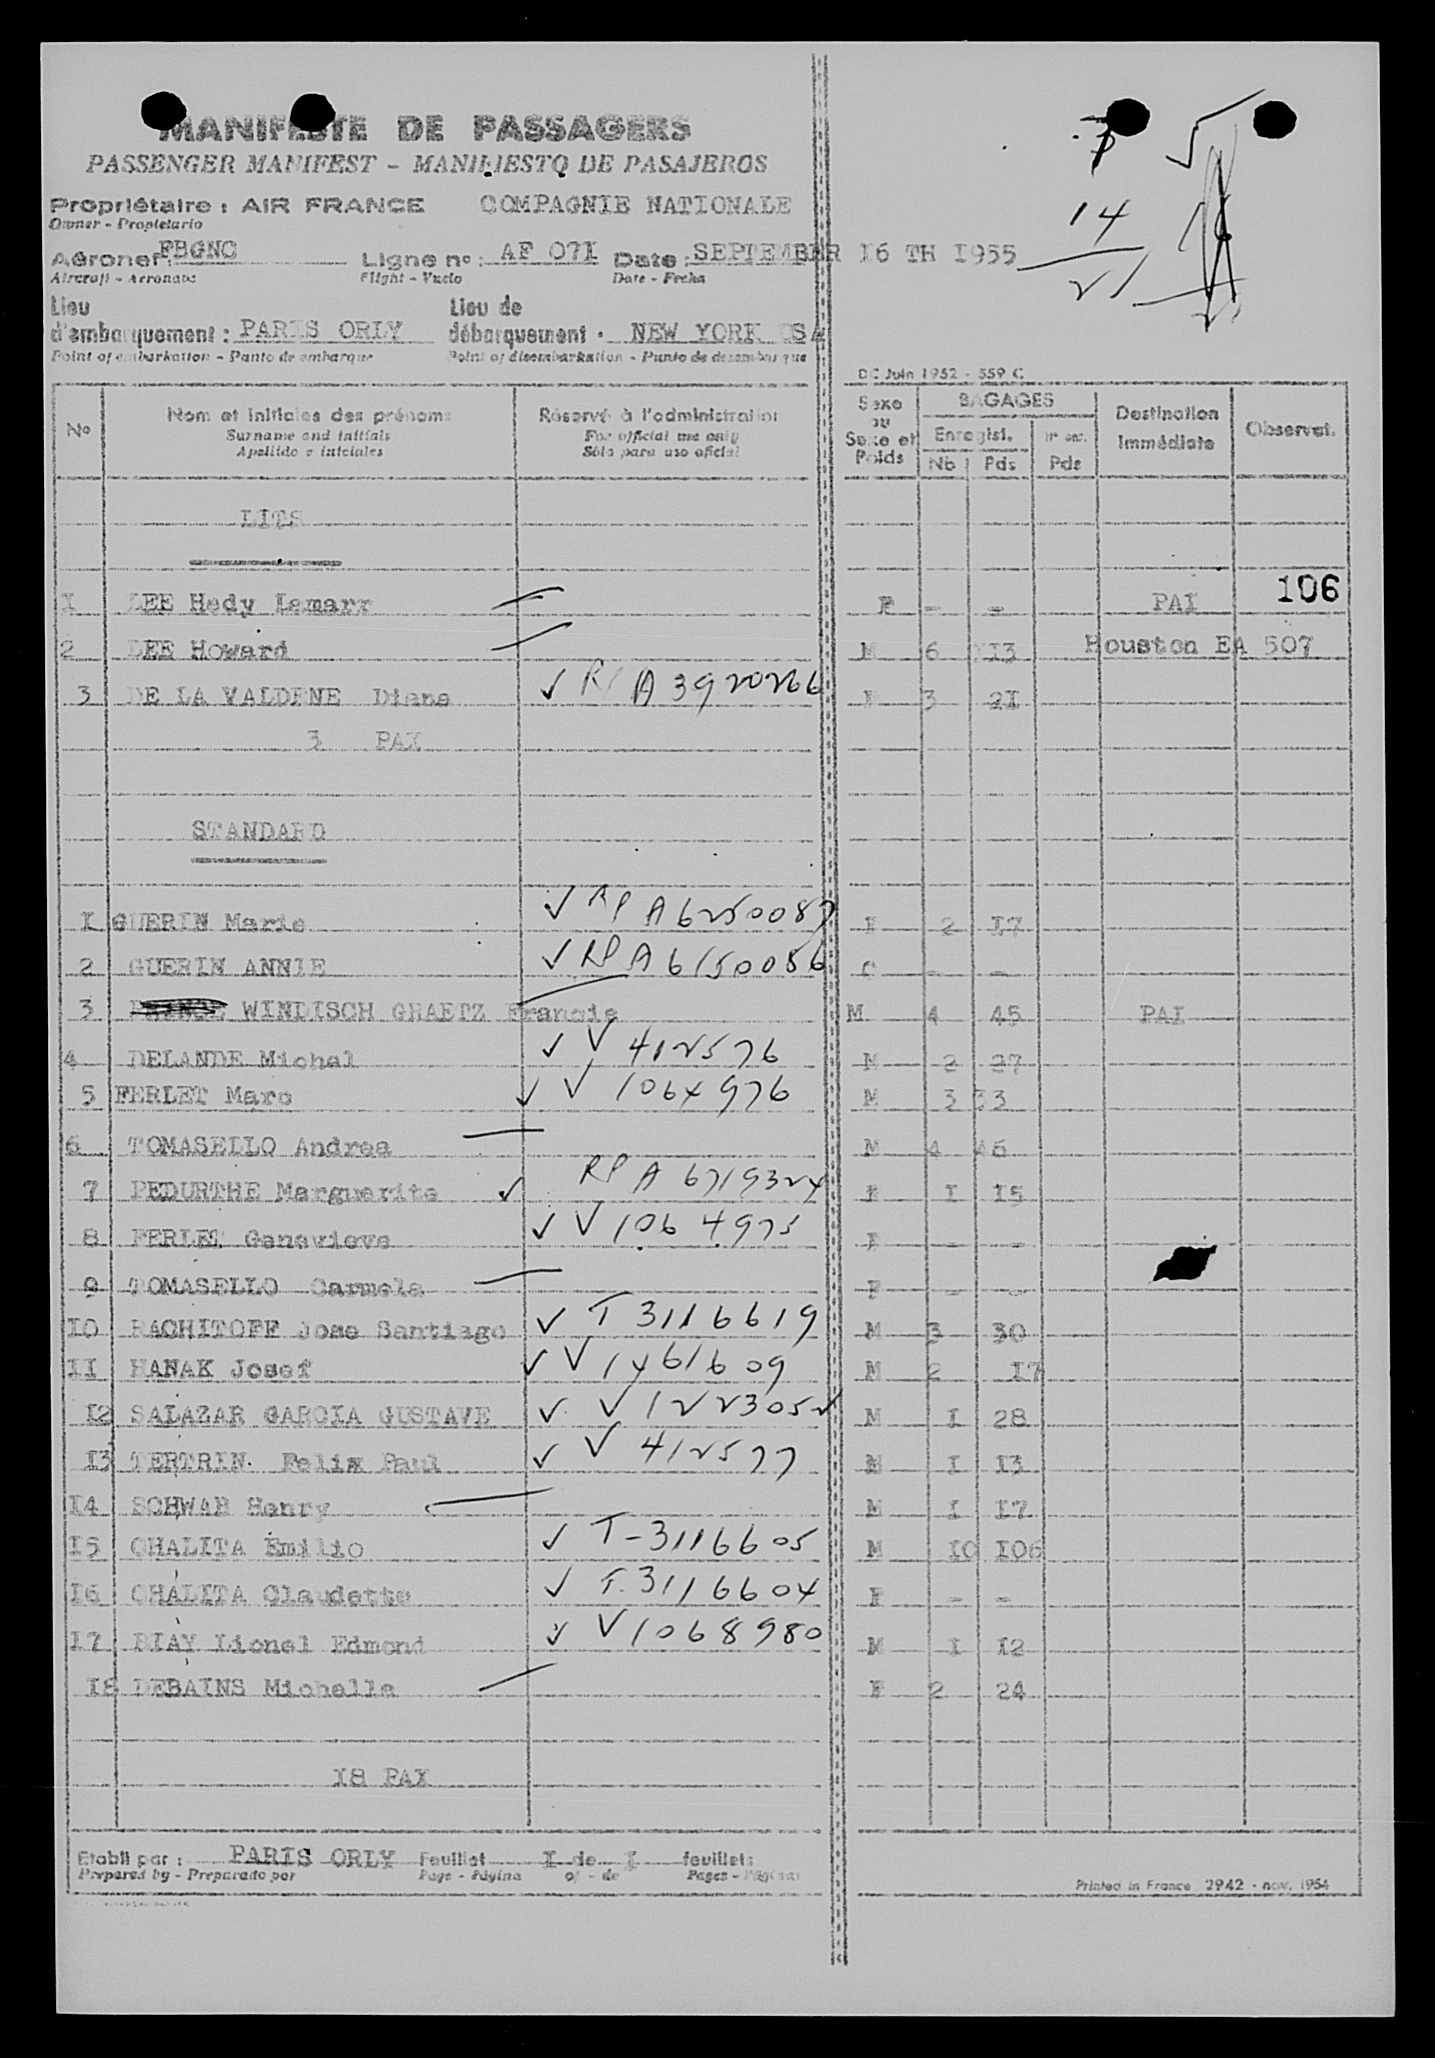 MANIFESTE DE PASSAGERS
PASSENGER MANIFEST - MANIFIESTO DE PASAJEROS
Propriétaire : AIR FRANCE COMPAGNIE NATIONALE
Owner - Propietario
Aéronef : FBGNC Ligne n° : AF 07I Date : SEPTEMBER I6 TH I955
Aircraft - Aeronave Flight - Vuelo Date - Fecha
14
21
Lieu d'embarquement : PARIS ORLY Lieu de débarquement : NEW YORK USA
Point of embarkation - Punto de embarque Point of disembarkation - Punto de desembarque
DC Juin 1952 - 559 C
N° Nom et initiales des prénoms Réservé à l'administration Sexe ou Sexe et Poids BAGAGES Destination immédiate Observat.
Surname and initials For official use only Enregist. N° enr.
Apellido e iniciales Sólo para uso oficial Nb Pds Pds
LITS
I LEE Hedy Lamarr F - - PAI 106
2 LEE Howard M 6 II3 Houston EA 507
3 DE LA VALDENE Diane ✓ RP A 3920266 F 3 2I
3 PAX
STANDARD
I GUERIN Marie ✓ RP A6250087 F 2 I7
2 GUERIN ANNIE ✓ RP A6150086 C - -
3 PRINCE WINDISCH GRAETZ Francis M 4 45 PAI
4 DELANDE Michel ✓ V 412576 M 2 27
5 FERLET Marc ✓ V 1064976 M 3 33
6 TOMASELLO Andrea M 4 46
7 PEDURTHE Marguerite ✓ RP A 6719324 F I I5
8 FERLET Genevieve ✓ V 1064975 F - -
9 TOMASELLO Carmela F - -
IO RACHITOFF Jose Santiago ✓ T 3116619 M 3 30
II HANAK Josef ✓ V 1461609 M 2 I7
I2 SALAZAR GARCIA GUSTAVE ✓ V 1223052 M I 28
I3 TERTRIN Felix Paul ✓ V 412577 M I I3
I4 SCHWAB Henry M I I7
I5 CHALITA Emilio ✓ T-3116605 M IO IO6
I6 CHALITA Claudette ✓ T.3116604 F - -
I7 BIAY Lionel Edmond ✓ V1068980 M I I2
I8 DEBAINS Michelle F 2 24
I8 PAX
Etabli par : PARIS ORLY Feuillet I de I feuillets
Prepared by - Preparado por Page - Página of - de Pages - Páginas
Printed in France 2942 - nov. 1954